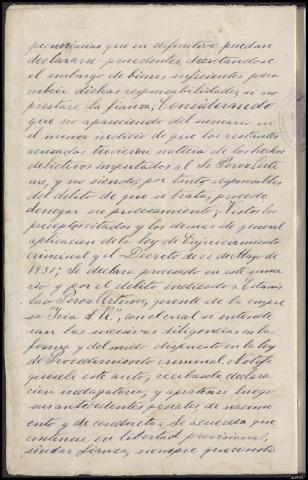 pecuniarias que en definitiva puedan
declararse procedentes, decretandose
el embargo de bienes suficientes para
cubrir dichas responsabilidades si no
prestare la fianza; Considerando
que no apareciendo del sumario ni
el menor indicio de que los restantes
acusados tuvieron noticia de los hechos
delictivos imputados al Sr Perez
y no siendo, por tanto, responsables
del delito de que se trata, procede
denegar su procesamiento; Vistos los
preceptos citados y los demas de general
aplicacion de la ley de Enjuiciamiento
criminal y el Decreto de de Mayo de
1931; Se declara procesado en este suma
rio y por el delito indicado a Estanis
lao Perez Artime, gerente de la empre
sa con el cual se entende
ran las sucesivas diligencias en la
forma y del modo dispuesto en la ley
de Procedimiento criminal. Notifi
quesele este auto, recibasele declara
cion indagatoria, y aportense luego
sus antecedentes penales, de nacimi
ento y de conducta. Se acuerda que
continue en libertad provisional,
sin dar fianza, siempre que consti